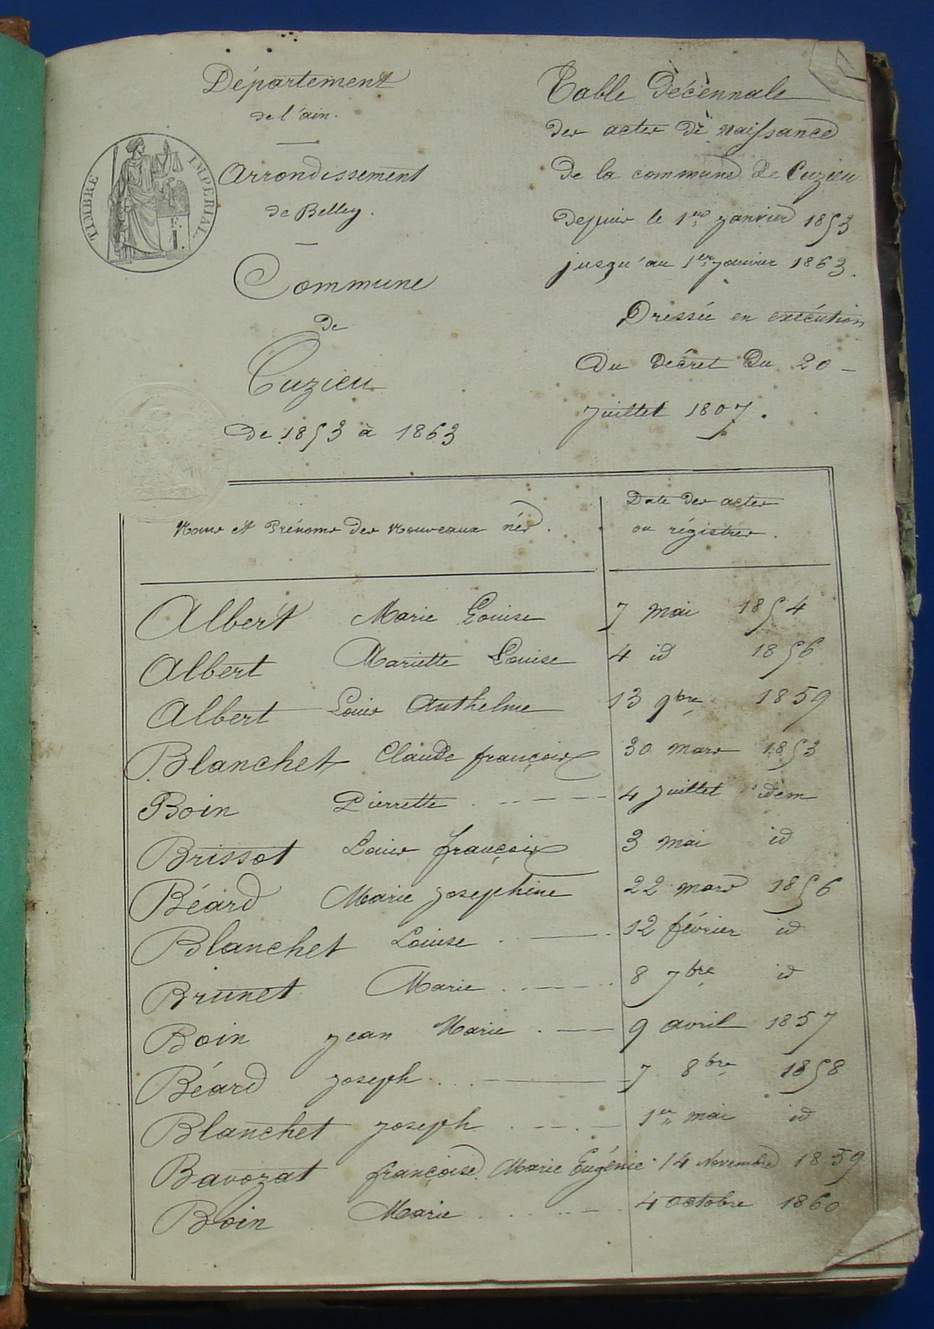 Département
de l'ain.
TIMBRE IMPERIAL
Arrondissement
de Belley.
Commune
de
Cuzieu
de 1853 à 1863
Table décennale
des actes de naissance
de la commune de Cuzieu
depuis le 1er janvier 1853
jusqu'au 1er janvier 1863.
Dressée en exécution
du décret du 20
juillet 1807.
Noms et Prénoms des Nouveaux nés.
Date des actes
ou régistres.
Albert Marie Louise 7 mai 1854
Albert Mariette Louise 4 id 1856
Albert Louis Anthelme 13 9bre 1859
Blanchet Claude françois 30 mars 1853
Boin Pierrette 4 juillet idem
Brissot Louis françois 3 mai id
Béard Marie josephine 22 mars 1856
Blanchet Louise 12 février id
Brunet Marie 8 7bre id
Boin jean Marie 9 avril 1857
Béard joseph 7 8bre 1858
Blanchet joseph 1er mai id
Bavozat françoise Marie Eugénie 14 Novembre 1859
Boin Marie 4 octobre 1860